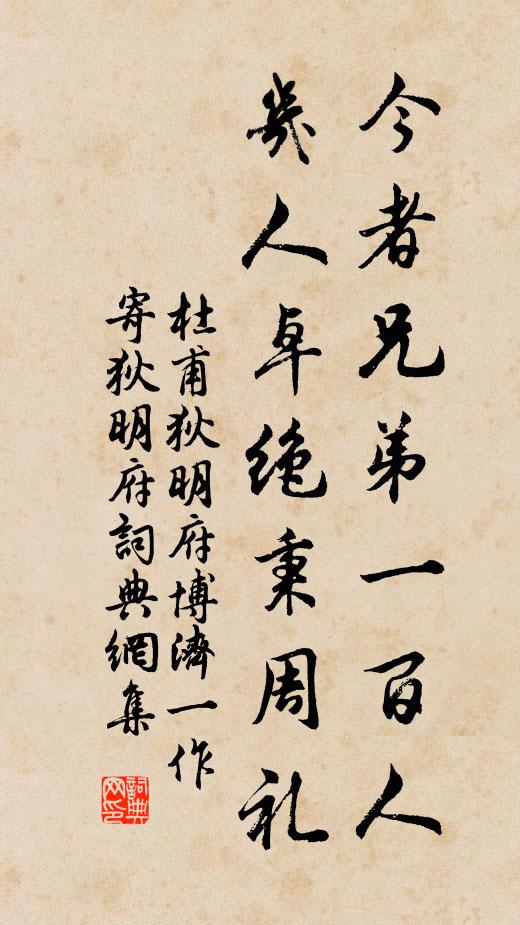 今者兄弟一百人
幾人卓絕秉周礼
杜甫狄明府博濟一作
寄狄明府詞典網集
詞典网印